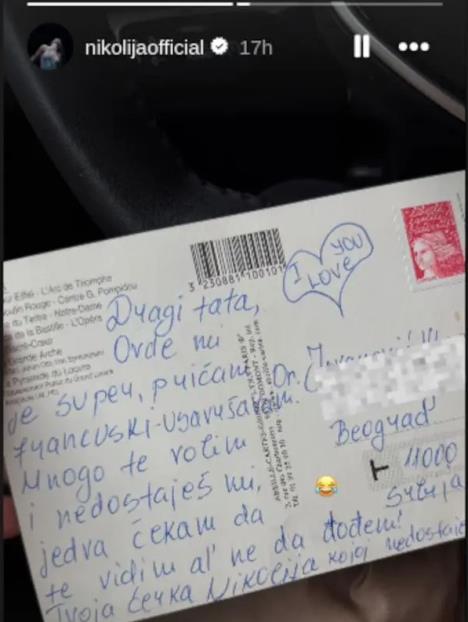 nikolijaofficial 17h
ur Eiffel - L'Arc de Triomphe
oulin Rouge - Centre G. Pompidou
du Tertre - Notre-Dame
de la Bastille - L'Opéra
Sacré-Cœur
Grande Arche
Pyramide du Louvre
3 230881 100101
I LOVE YOU
Dragi tata,
Ovde mi
je super, pričam
francuski-usavršavam.
Mnogo te volim
i nedostaješ mi,
jedva čekam da
te vidim al' ne da dođem!
Tvoja ćerka Nikolija kojoj nedostaje
Dr.
Beograd
T 11000
Srbija